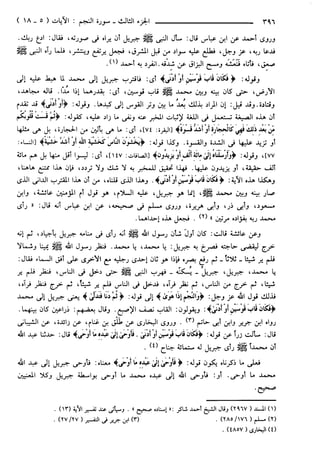 ٣٩٦ الجزء الثالث - سورة النجم : الآيات ( ٥ - ١٨ )
وروى أحمد عن ابن عباس قال: سأل النبي ﷺ جبريل أن يراه في صورته، فقال: ادع ربك.
فدعا ربه، عز وجل، فطلع عليه سواد من قبل المشرق، فجعل يرتفع وينتشر، فلما رآه النبي ﷺ
صعق، فأتاه، فنعشه ومسح البزاق عن شدقه. انفرد به أحمد (١).
وقوله: ﴿فكان قاب قوسين أو أدنى﴾ أي: فاقترب جبريل إلى محمد لما هبط عليه إلى
الأرض، حتى كان بينه وبين محمد ﷺ قاب قوسين، أي: بقدرهما إذا مدا. قاله مجاهد،
وقتادة. وقد قيل: إن المراد بذلك بعد ما بين وتر القوس إلى كبدها. وقوله: ﴿أو أدنى﴾ قد تقدم
أن هذه الصيغة تستعمل في اللغة لإثبات المخبر عنه ونفي ما زاد عليه، كقوله: ﴿ثم قست قلوبكم
من بعد ذلك فهي كالحجارة أو أشد قسوة﴾ [البقرة: ٧٤]، أي: ما هي بألين من الحجارة، بل هي مثلها
أو تزيد عليها في الشدة والقسوة. وكذا قوله: ﴿يخشون الناس كخشية الله أو أشد خشية﴾ [النساء:
٧٧]، وقوله: ﴿وأرسلناه إلى مائة ألف أو يزيدون﴾ [الصافات: ١٤٧]، أي: ليسوا أقل منها بل هم مائة
ألف حقيقة، أو يزيدون عليها. فهذا تحقيق للمخبر به لا شك ولا تردد، فإن هذا ممتنع هاهنا،
وهكذا هذه الآية: ﴿فكان قاب قوسين أو أدنى﴾. وهذا الذي قلناه، من أن هذا المقترب الداني الذي
صار بينه وبين محمد ﷺ، إنما هو جبريل، عليه السلام، هو قول أم المؤمنين عائشة، وابن
مسعود، وأبي ذر، وأبي هريرة، وروى مسلم في صحيحه، عن ابن عباس أنه قال: « رأى
محمد ربه بفؤاده مرتين » (٢). فجعل هذه إحداهما.
وعن عائشة قالت: كان أول شأن رسول الله ﷺ أنه رأى في منامه جبريل بأجياد، ثم إنه
خرج ليقضي حاجته فصرخ به جبريل: يا محمد، يا محمد. فنظر رسول الله ﷺ يمينا وشمالا
فلم ير شيئا - ثلاثا - ثم رفع بصره فإذا هو ثان إحدى رجليه مع الأخرى على أفق السماء فقال:
يا محمد، جبريل، جبريل - يسكنه - فهرب النبي ﷺ حتى دخل في الناس، فنظر فلم ير
شيئا، ثم خرج من الناس، ثم نظر فرآه، فدخل في الناس فلم ير شيئا، ثم خرج فنظر فرآه،
فذلك قول الله عز وجل: ﴿والنجم إذا هوى﴾ إلى قوله: ﴿ثم دنا فتدلى﴾ يعني جبريل إلى محمد
﴿فكان قاب قوسين أو أدنى﴾: ويقولون: القاب نصف الإصبع. وقال بعضهم: ذراعين كان بينهما.
رواه ابن جرير وابن أبي حاتم (٣). وروى البخاري عن طلق بن غنام، عن زائدة، عن الشيباني
قال: سألت زرا عن قوله: ﴿فكان قاب قوسين أو أدنى. فأوحى إلى عبده ما أوحى﴾ قال: حدثنا عبد الله
أن محمدا ﷺ رأى جبريل له ستمائة جناح (٤).
فعلى ما ذكرناه يكون قوله: ﴿فأوحى إلى عبده ما أوحى﴾ معناه: فأوحى جبريل إلى عبد الله
محمد ما أوحى. أو: فأوحى الله إلى عبده محمد ما أوحى بواسطة جبريل وكلا المعنيين
صحيح.
(١) المسند (٢٩٦٧) وقال الشيخ أحمد شاكر : « إسناده صحيح » . وسيأتي عند تفسير الآية (١٣) .
(٢) مسلم (١٧٦/ ٢٨٥) . (٣) ابن جرير في التفسير (٢٧/ ٢٧) .
(٤) البخاري (٤٨٥٧) .